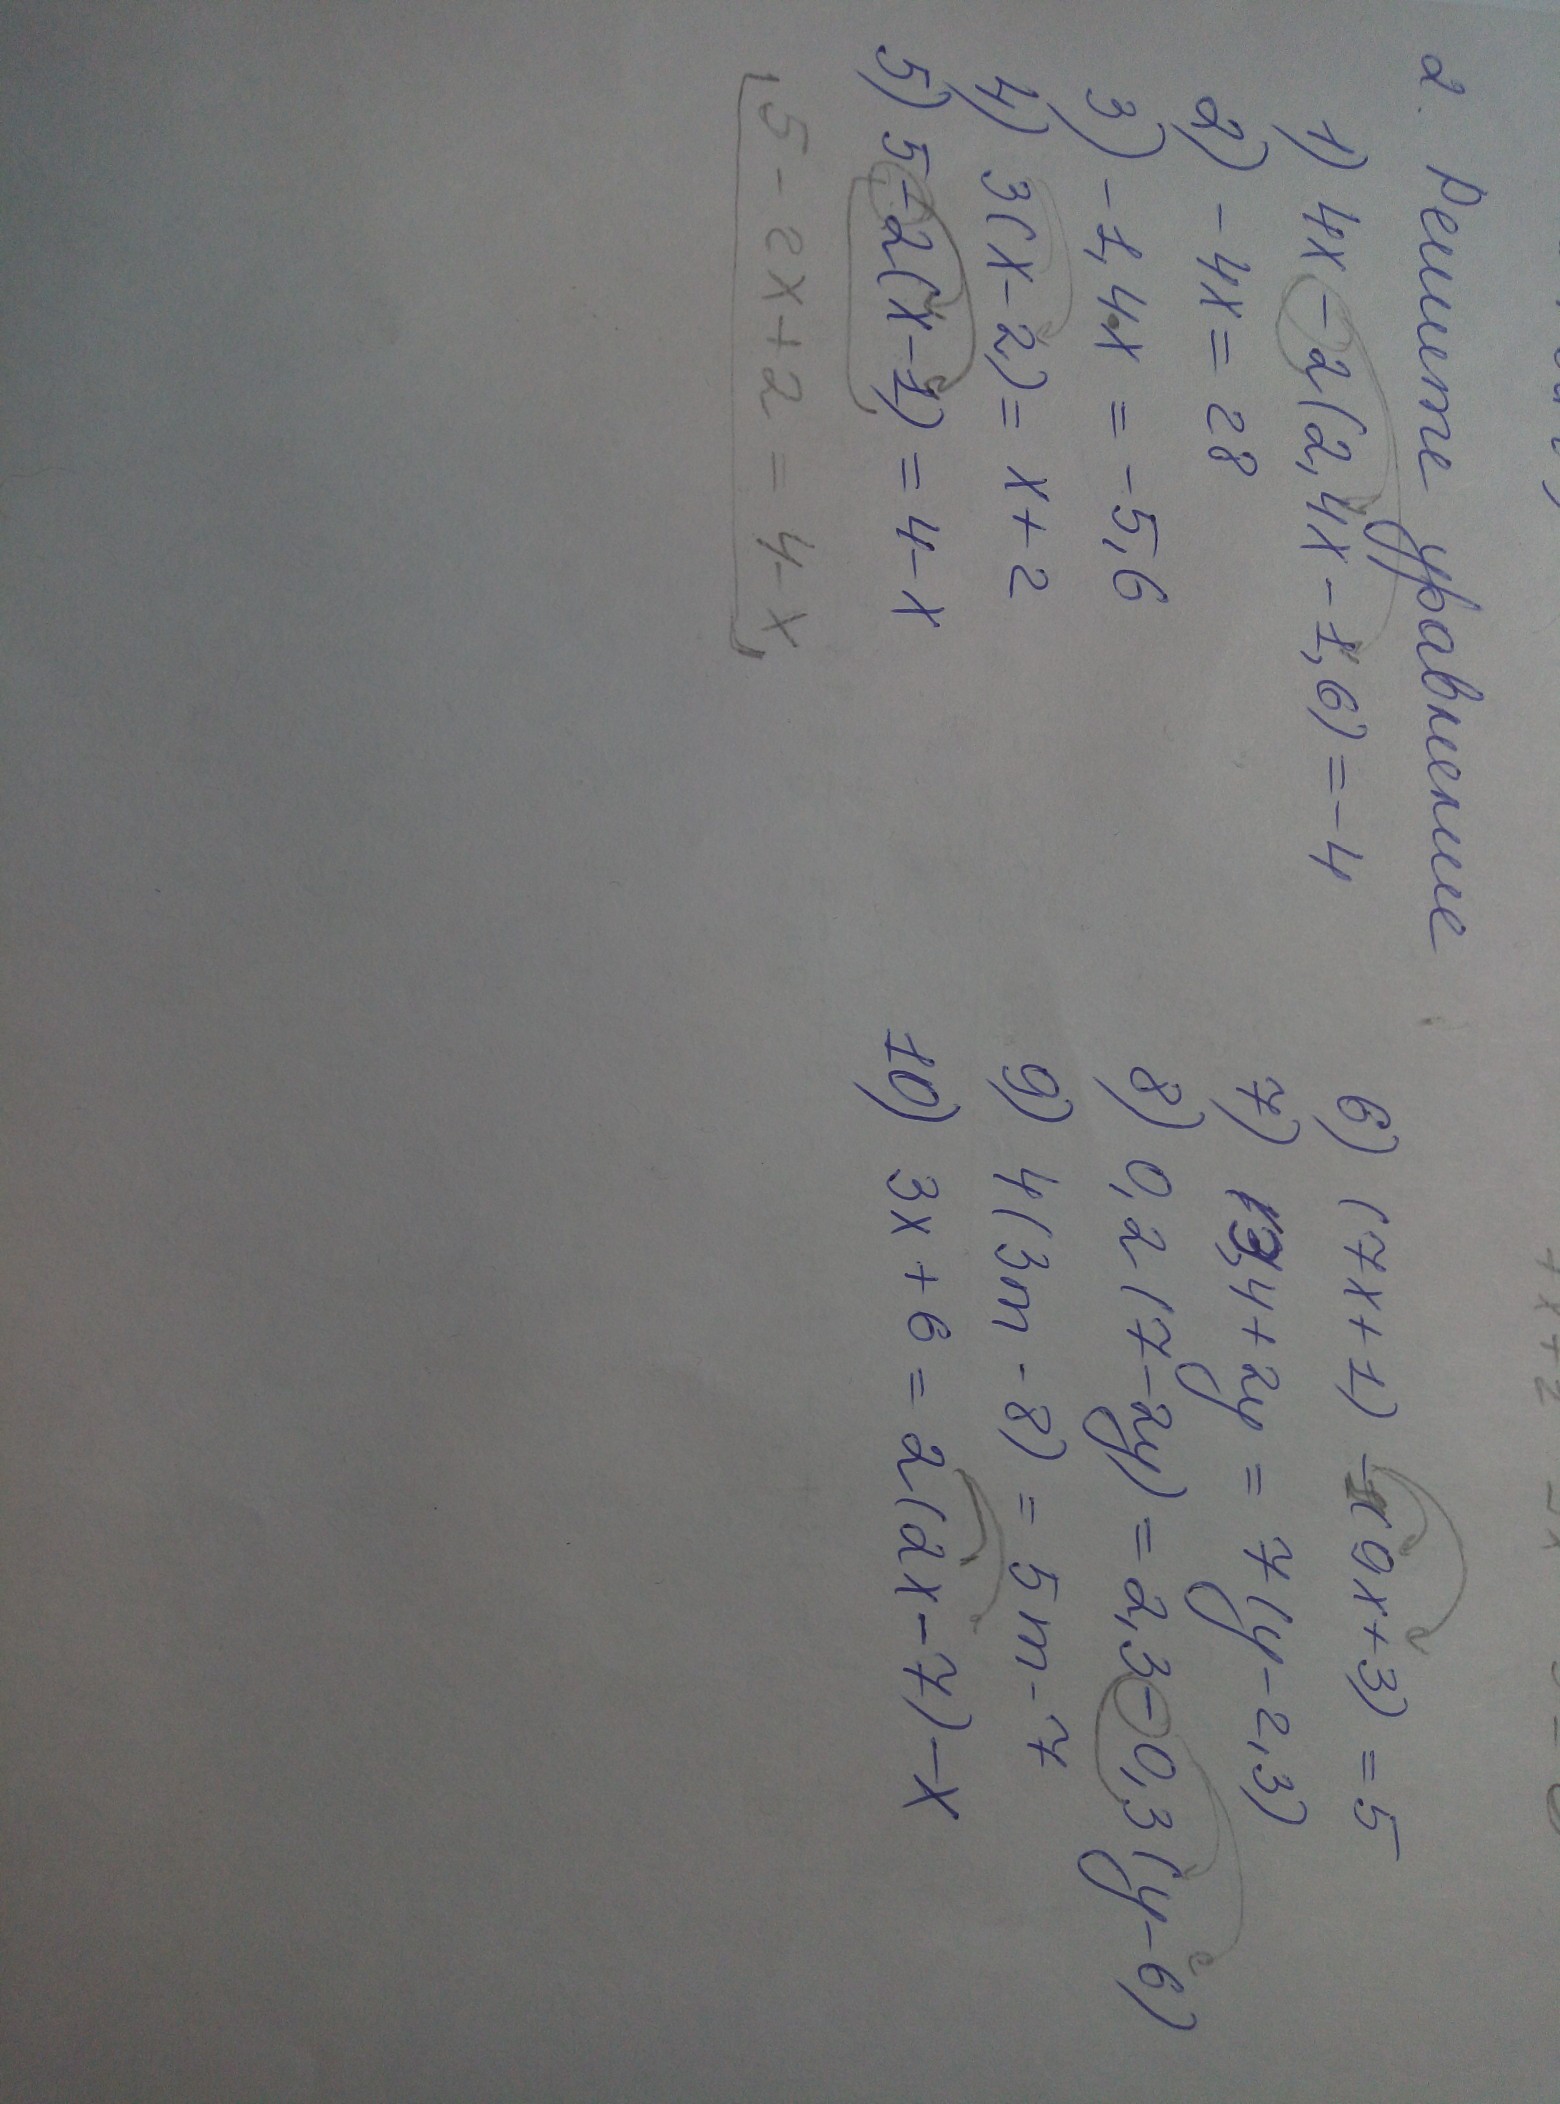 2. Решите уравнение
1) 4x - 2(2,4x - 1,6) = -4
2) -4x = 28
3) -1,4x = -5,6
4) 3(x - 2) = x + 2
5) 5 - 2(x - 1) = 4 - x
5 - 2x + 2 = 4 - x
6) (7x + 1) - (9x + 3) = 5
7) 13,4 + 2y = 7(y - 2,3)
8) 0,2(7 - 2y) = 2,3 - 0,3(y - 6)
9) 4(3m - 8) = 5m - 7
10) 3x + 6 = 2(2x - 7) - x